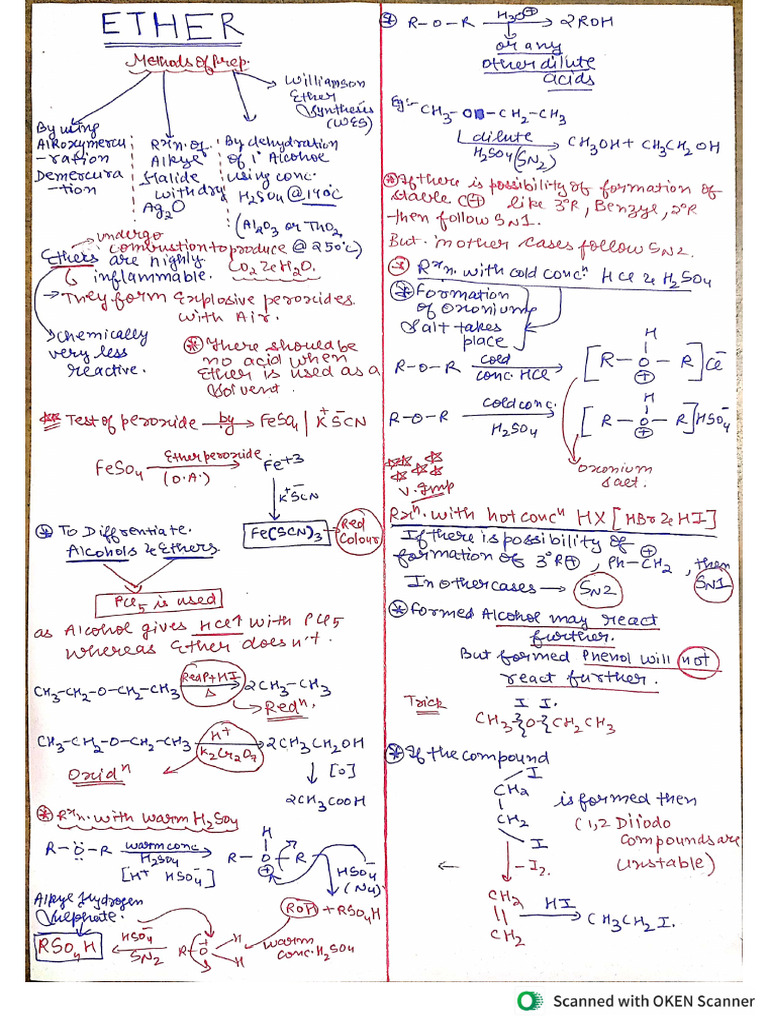 ETHER
Methods of Prep.
By using
Alkoxymercu
-ration
Demercura
-tion
Rxn. of
Alkyl
Halide
with dry
Ag2O
By dehydration
of 1° Alcohol
using conc.
H2SO4 @ 140°C
(Al2O3 or ThO2
@ 250°C)
Williamson
Ether
Synthesis
(WES)
undergo
combustion to produce
CO2 & H2O.
Ethers are highly
inflammable.
→ They form Explosive peroxides
with Air.
→ Chemically
very less
reactive.
* There should be
no acid when
Ether is used as a
Solvent.
Test of peroxide by → FeSO4 | K+SCN-
FeSO4 Ether peroxide → Fe+3
(O.A.)
↓ K+SCN-
Fe(SCN)3 → Red
Colour
* To Differentiate
Alcohols & Ethers
PCl5 is used
as Alcohol gives HCl↑ with PCl5
whereas Ether doesn't.
CH3-CH2-O-CH2-CH3 Red P + HI → 2CH3-CH3
Δ
→ Redn.
CH3-CH2-O-CH2-CH3 H+ → 2CH3CH2OH
K2Cr2O7
Oxidn
↓ [O]
2CH3COOH
* Rxn. with warm H2SO4
R-Ö-R warm conc. → R-O-R
H2SO4
[H+ HSO4-]
H
⊕
HSO4-
(Nu)
Alkyl Hydrogen
Sulphate.
ROH + RSO4H
RSO4H ← HSO4- R-O+ H
SN2
H
warm
conc. H2SO4
* R-O-R H3O⊕ → 2ROH
or any
other dilute
acids
Eg:- CH3-O-CH2-CH3
dilute → CH3OH + CH3CH2OH
H2SO4 (SN2)
* If there is possibility of formation of
stable C⊕ like 3°R, Benzyl, 2°R
then follow SN1.
But in other cases follow SN2.
Rxn. with cold concn HCl & H2SO4
* Formation
of Oxonium
Salt takes
place
R-O-R cold → [R-O-R]Cl-
conc. HCl
H
⊕
R-O-R cold conc. → [R-O-R]HSO4-
H2SO4
H
⊕
Oxonium
salt.
V. Imp
Rxn. with hot concn HX [HBr & HI]
If there is possibility of
formation of 3°R⊕, Ph-CH2⊕, then
SN1
In other cases → SN2
* Formed Alcohol may react
further.
But formed Phenol will not
react further.
Trick
I I.
CH3}O{CH2CH3
* If the compound
I
CH2
CH2
I
is formed then
(1,2 Diiodo
compounds are
unstable)
←
↓ -I2.
CH2
||
CH2
HI → CH3CH2I.
Scanned with OKEN Scanner